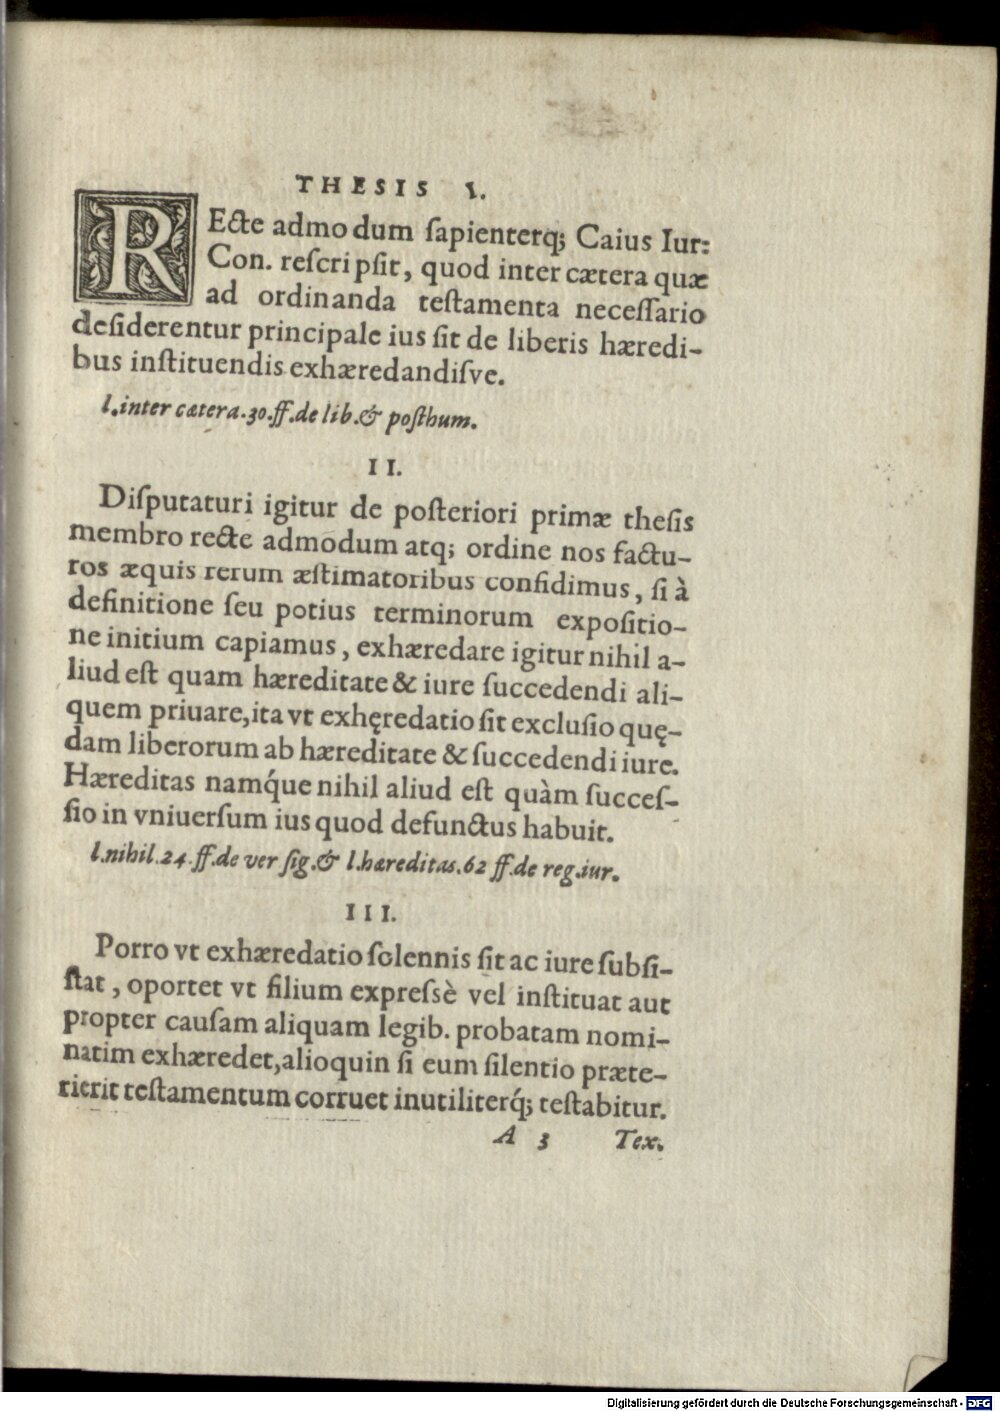 THESIS I.
REcte admodum ſapienterq; Caius Iur:
Con. reſcripſit, quod inter cætera quæ
ad ordinanda teſtamenta neceſſario
deſiderentur principale ius ſit de liberis hæredi-
bus inſtituendis exhæredandiſve.
l.inter cætera.30.ff.de lib.& poſthum.
II.
Diſputaturi igitur de poſteriori primæ theſis
membro recte admodum atq; ordine nos factu-
ros æquis rerum æſtimatoribus confidimus, ſi à
definitione ſeu potius terminorum expoſitio-
ne initium capiamus, exhæredare igitur nihil a-
liud eſt quam hæreditate & iure ſuccedendi ali-
quem priuare, ita vt exhęredatio ſit excluſio quę-
dam liberorum ab hæreditate & ſuccedendi iure.
Hæreditas namq́ue nihil aliud eſt quàm ſucceſ-
ſio in vniuerſum ius quod defunctus habuit.
l.nihil.24.ff.de ver ſig.& l.hæreditas.62 ff.de reg.iur.
III.
Porro vt exhæredatio ſolennis ſit ac iure ſubſi-
ſtat, oportet vt filium expreſsè vel inſtituat aut
propter cauſam aliquam legib. probatam nomi-
natim exhæredet, alioquin ſi eum ſilentio præte-
rierit teſtamentum corruet inutiliterq́; teſtabitur.
A 3 Tex.
Digitalisierung gefördert durch die Deutsche Forschungsgemeinschaft - DFG